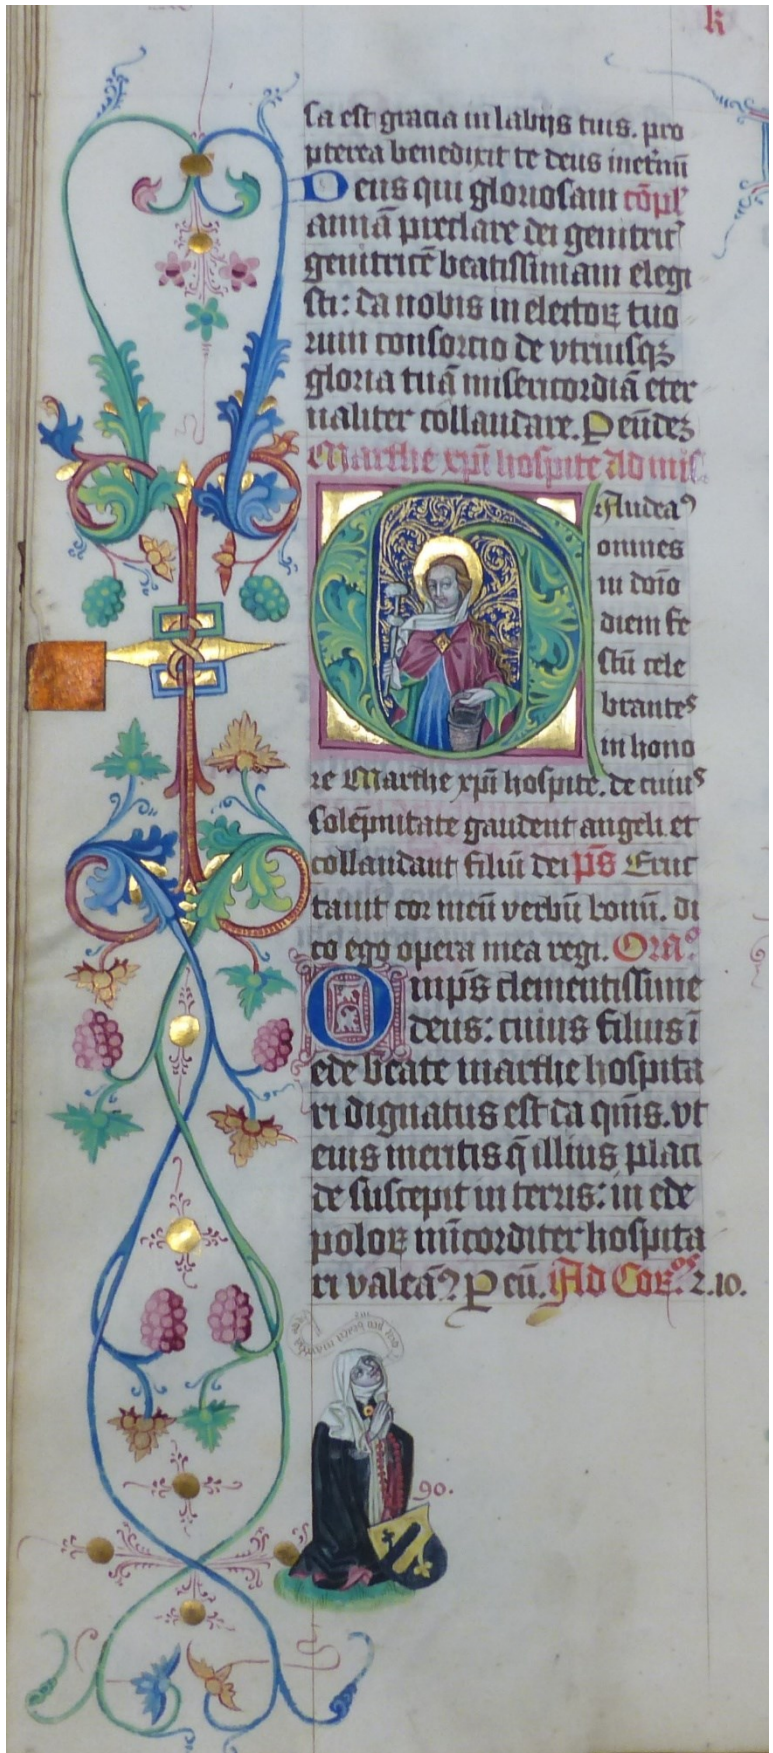 k
sa est gracia in labijs tuis. pro
pterea benedixit te deus inet̄nū
Deus qui gloriosam cōpl'
annā preclare dei genitric̄
genitricē beatissimam elegi
sti: da nobis in electoꝝ tuo
rum consorcio de vtriusqꝫ
gloria tuā misericordiā eter
naliter collaudare. P eūdeꝫ
Marthe xpi hospite Ad mis
Gaudeaꝰ
omnes
in dño
diem fe
stū cele
brantes
in hono
re Marthe xpi hospite. de cuiuˢ
solēpnitate gaudent angeli. et
collaudant filiū dei p̄s Eruc
tauit cor meū verbū bonū. di
co ego opera mea regi. Orāᵒ
Omp̄s clementissime
deus: cuius filius ī
ede beate marthe hospita
ri dignatus est da qm̄s. vt
eius meritis q̄ illius placi
de suscepit in terris: in ede
poloꝝ mīcorditer hospita
ri valeāꝰ P eū. Ad Coꝝ.ᵒˢ 2.10.
90.